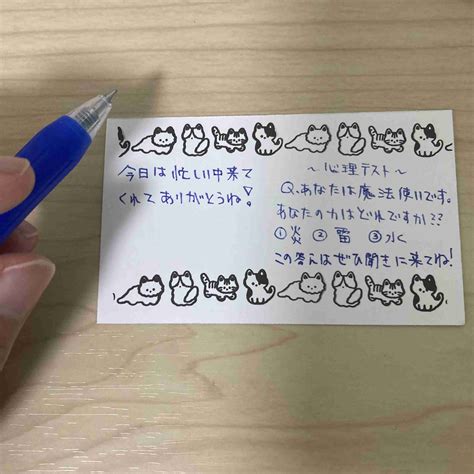 今日は忙しい中来て
くれてありがとうね!
～心理テスト～
Q.あなたは魔法使いです。
あなたの力はどれですか??
①炎 ②雷 ③水
この答えはぜひ聞きに来てね!